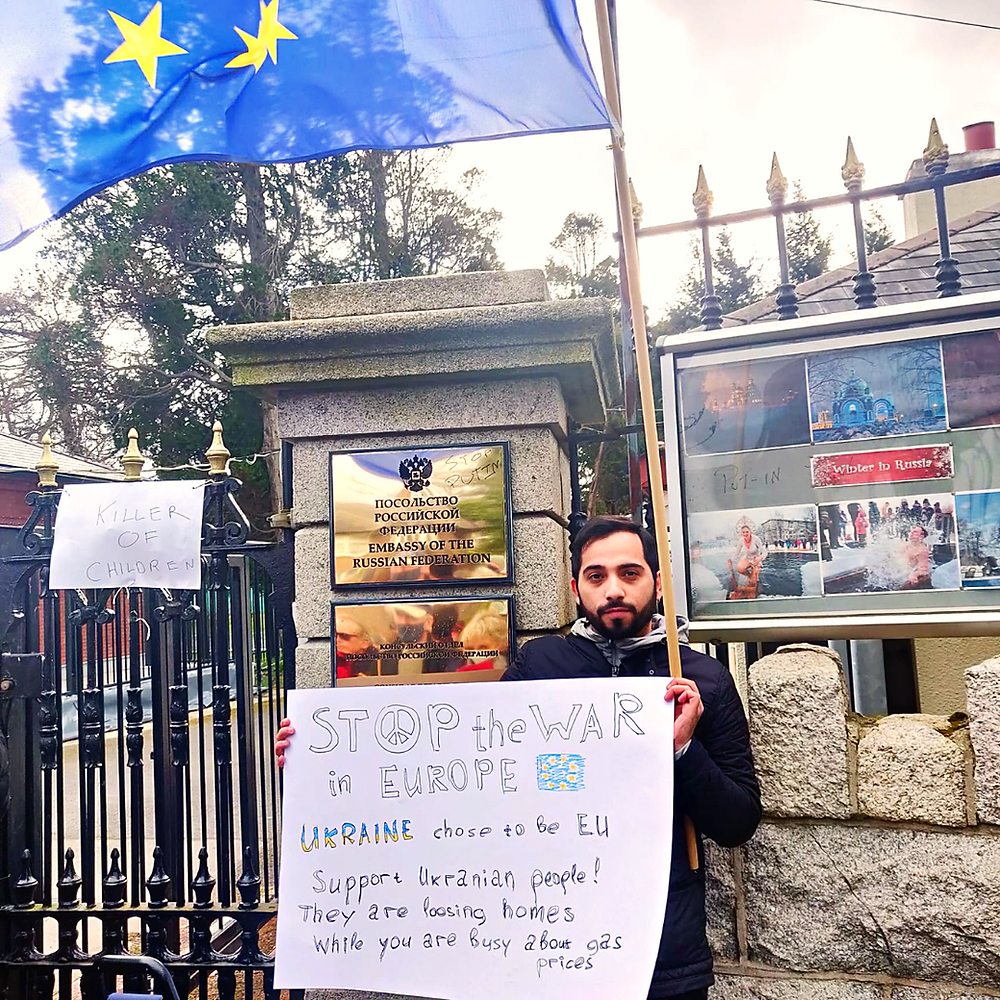 KILLER
OF
CHILDREN
STOP
PUTIN
ПОСОЛЬСТВО
РОССИЙСКОЙ
ФЕДЕРАЦИИ
EMBASSY OF THE
RUSSIAN FEDERATION
КОНСУЛЬСКИЙ ОТДЕЛ
ПОСОЛЬСТВА РОССИЙСКОЙ ФЕДЕРАЦИИ
PUT-IN
Winter in Russia
STOP the WAR
in EUROPE
UKRAINE chose to be EU
Support Ukranian people!
They are loosing homes
While you are busy about gas
prices